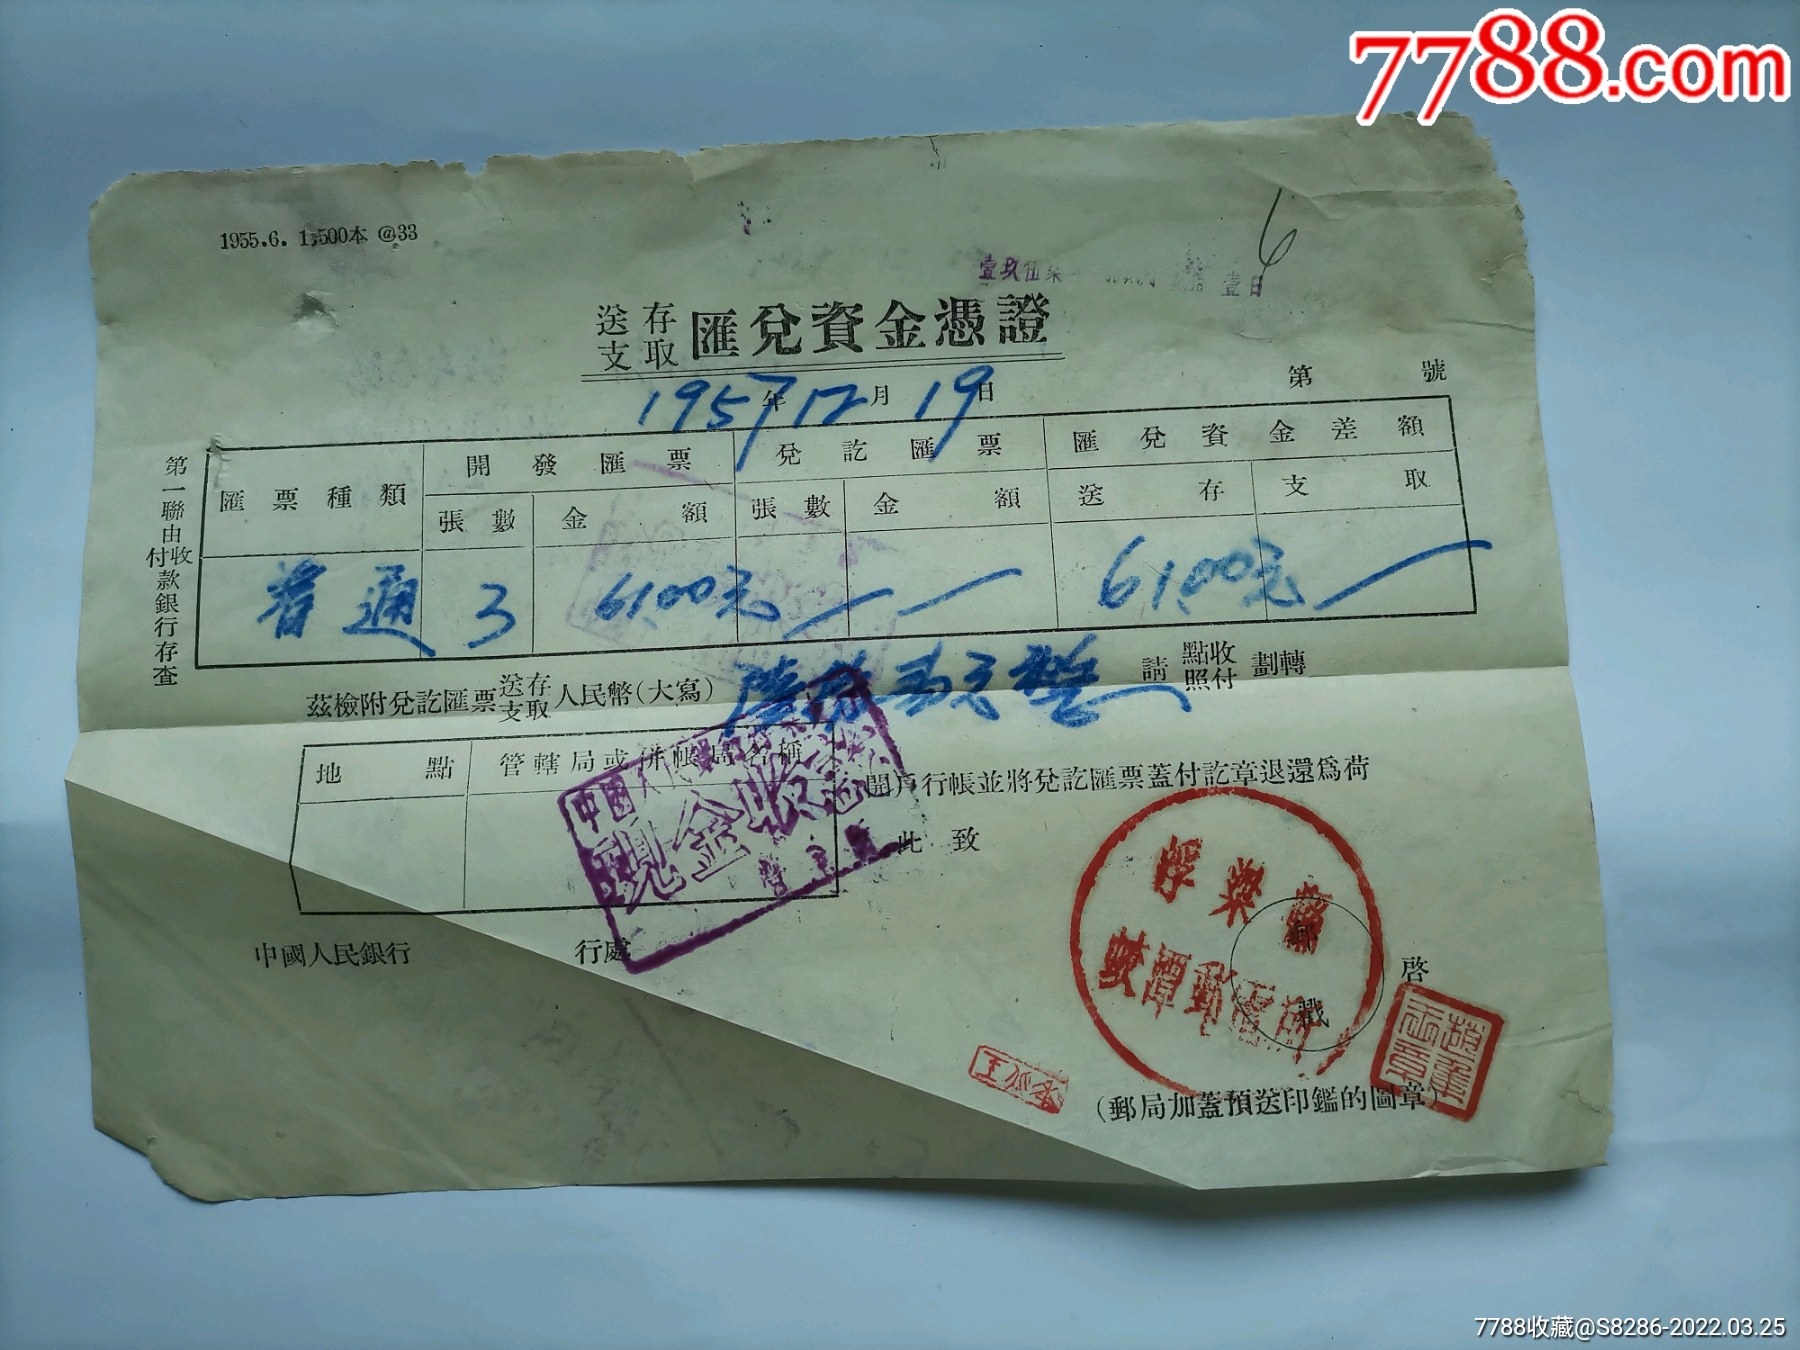 7788.com
1955.6. 1,500本 @33
6
壹玖伍柒 壹日
送存
支取
匯兌資金憑證
1957年12月19日
第 號
匯票種類 開發匯票 兌訖匯票 匯兌資金差額
張數 金額 張數 金額 送存 支取
普通 3 61.00元 61.00元
第一聯由收付款銀行存查
茲檢附兌訖匯票送存支取人民幣(大寫) 陸拾壹元整 請點收照付劃轉
地點 管轄局或併帳局名稱
開戶行帳並將兌訖匯票蓋付訖章退還爲荷
此致
中國人民銀行 行處
啓
中國人民
現金收
浮梁縣
蛟潭郵電所
郵戳
(郵局加蓋預送印鑑的圖章)
7788收藏@S8286-2022.03.25